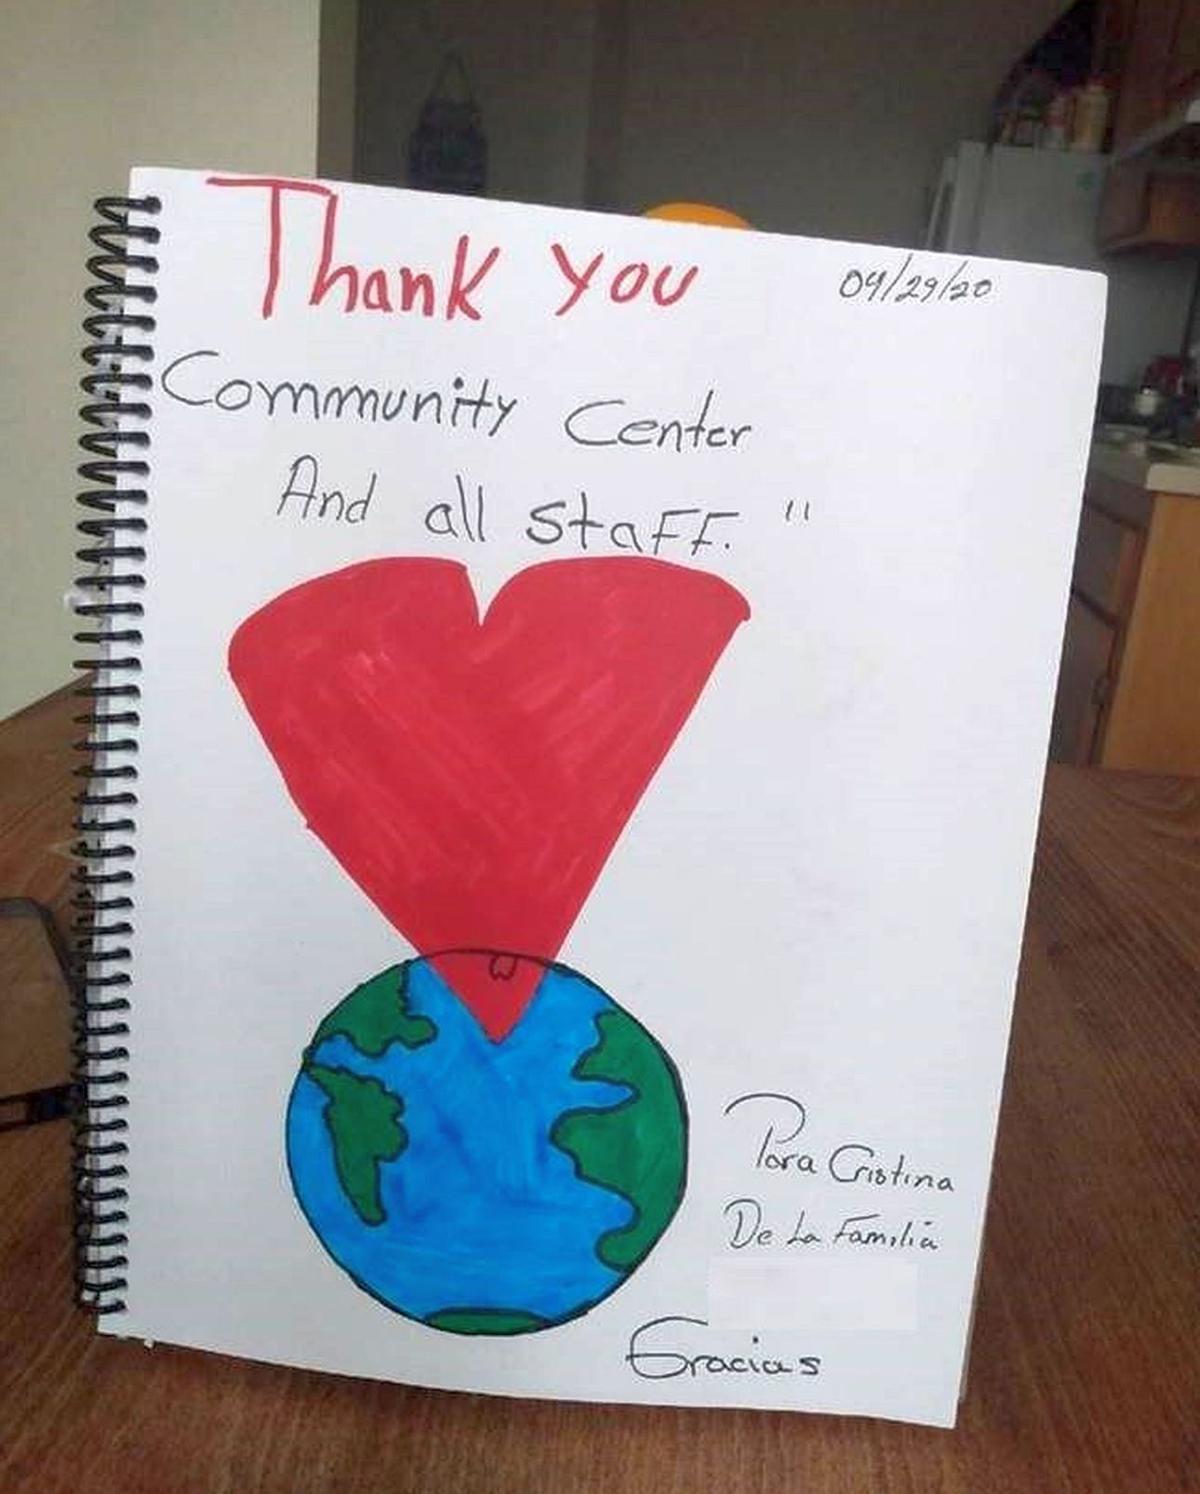 Thank you
04/29/20
Community Center
And all staff. "
Para Cristina
De La Familia
Gracias